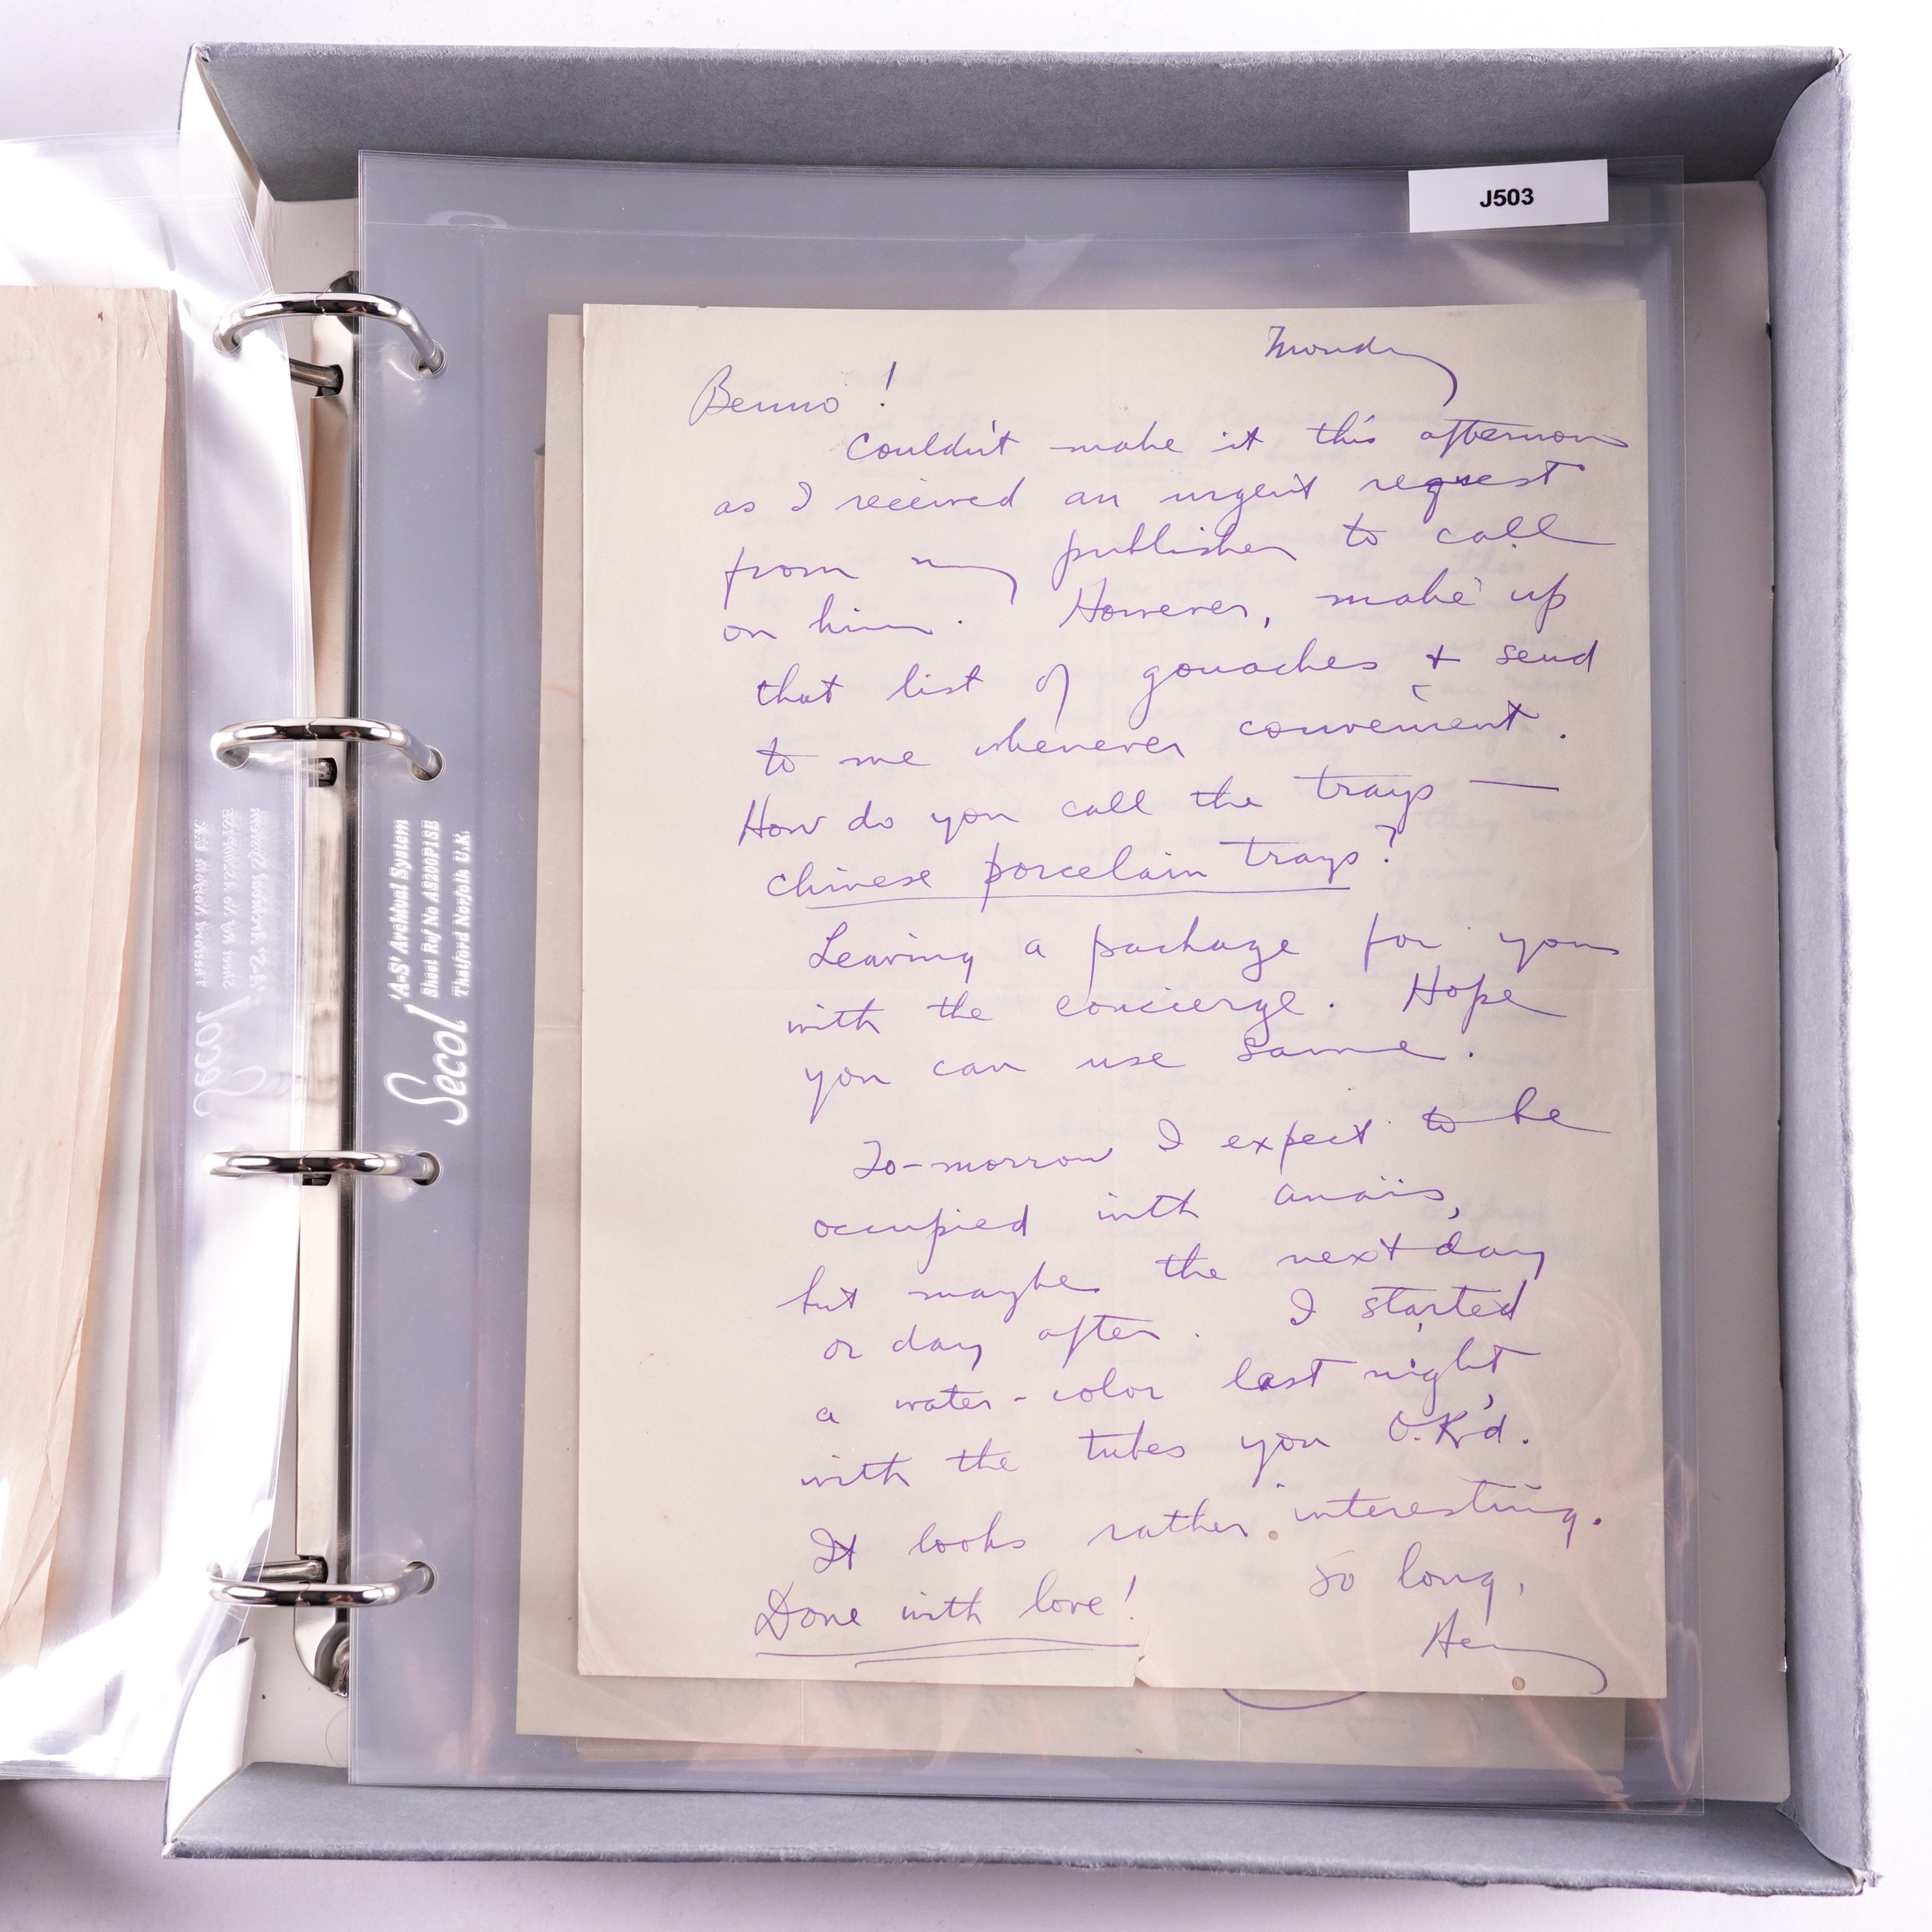 J503
Monday
Benno!
Couldn't make it this afternoon
as I received an urgent request
from my publisher to call
on him. However, make up
that list of gouaches + send
to me whenever convenient.
How do you call the trays —
chinese porcelain trays?
Leaving a package for you
with the concierge. Hope
you can use same.
To-morrow I expect to be
occupied with Anaïs,
but maybe the next day
or day after. I started
a water-color last night,
with the tubes you O.K.'d.
It looks rather interesting.
Done with love! So long,
Henry
Secol 'A-S' Archival System
Sheet Ref No AS200P15E
Thetford Norfolk U.K.